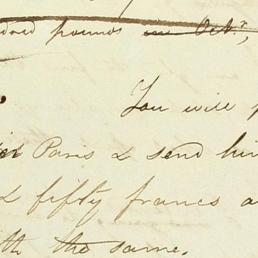 pounds in Oct.r,
You will
Paris & send him
& fifty francs a
the same.